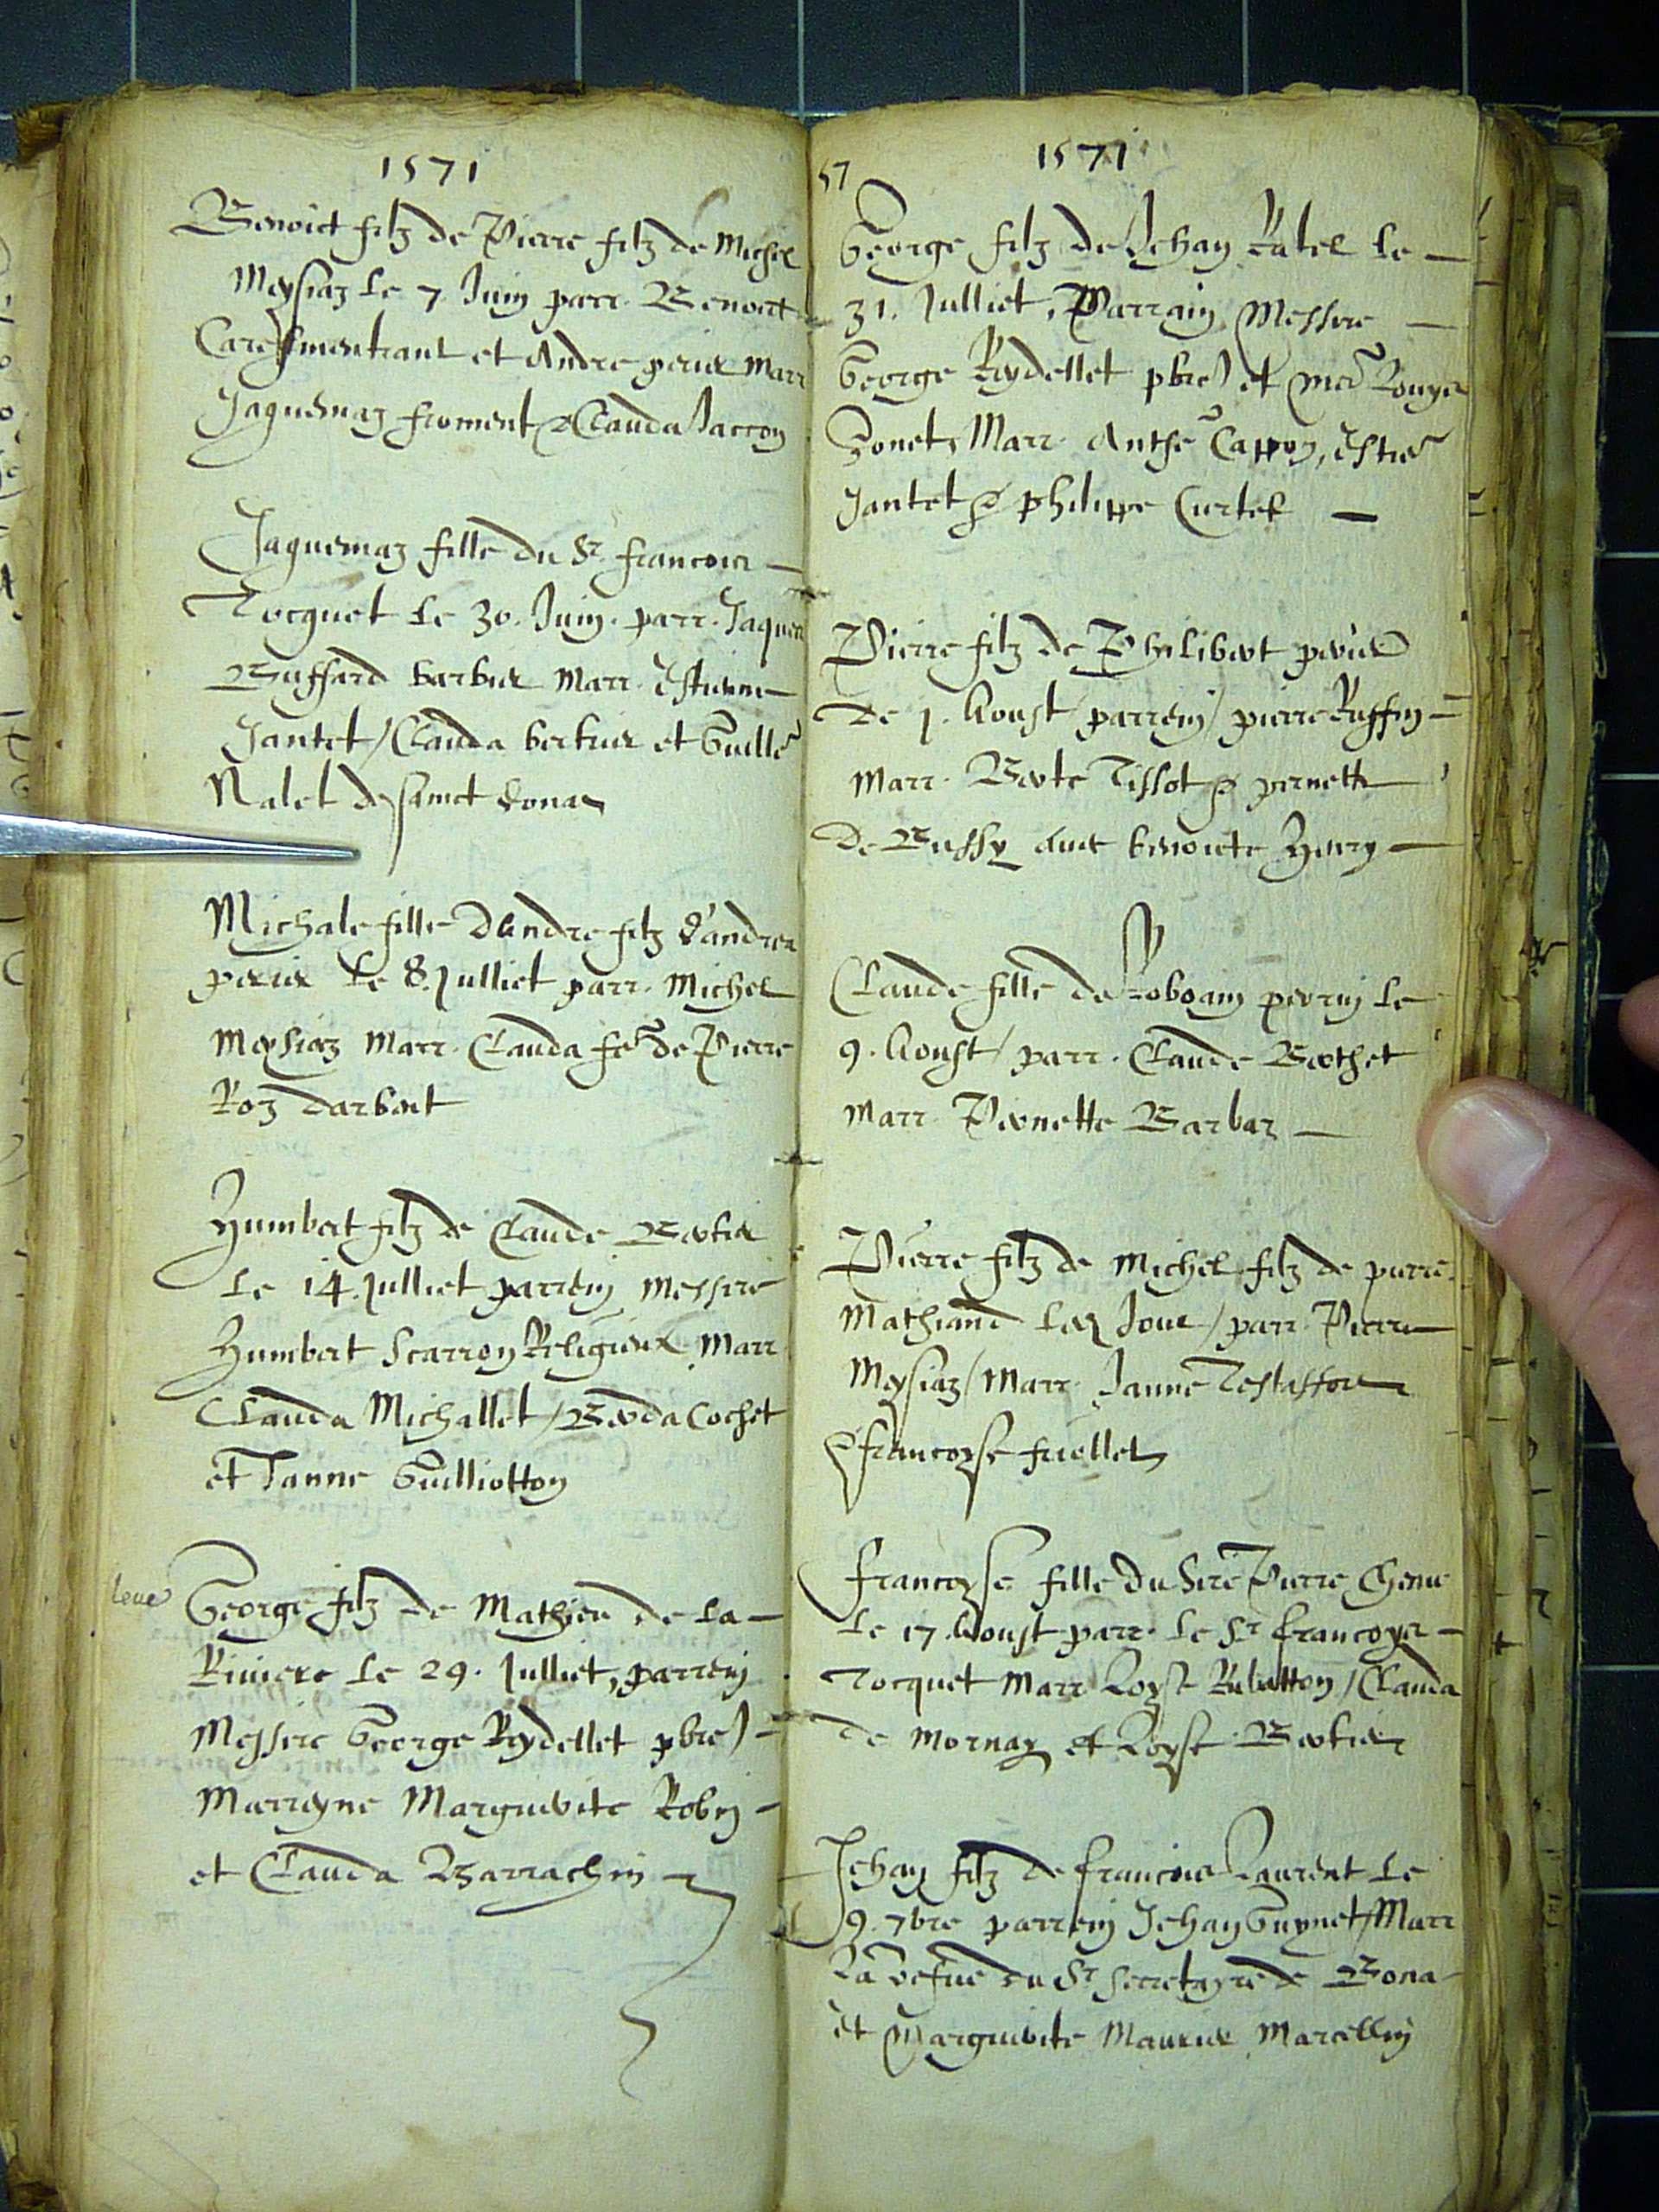 1571
Benoict filz de Pierre filz de Michel
Meysiaz le 7 Juin parr. Benoict
Caresmentrant et Andre perier Marr
Jaquemaz froment & Clauda Jarcon
Jaquemaz fille du Sr. francois
Tocquet le 30. Juin. parr. Jaques
Buffard barbier Marr. Estienne
Jantet / Clauda bertier et Guille
Nalet de sainct
Michale fille Dandre filz d'andre
perier le 8. Julliet parr. Michel
Meysiaz Marr. Clauda fe de Pierre
Roz darbent
Humbert filz de Claude Bertier
le 14. Julliet parrein Messire
Humbert Scarron Religieux Marr
Clauda Michallet / Benda Cochet
et Janne Guilliotton
George filz de Mathieu de la
Riviere le 29. Julliet, parrein
Messire George Reydellet pbre
Marreyne Marguerite Robin
et Clauda Barrachin
57
1571
George filz de Jehan Ratel le
31. Julliet, Parrain Messire
George Reydellet pbre et Rouyer
Zonet, Marr. Anthe Cappon, Estie
Jantet & philippe Curtet
Pierre filz de Philibert perier
de 1. Aoust / parrein / pierre Ruffin
Marr. Berte Tissot & pernette
De Bussy benoicte Henry
Claude fille de Roboam perrin le
9. Aoust / parr. Claude Berthet
Marr. Pernette Barbaz
Pierre filz de Michel filz de pierre
Mathiand Jour / parr. Pierre
Meysiaz / Marr. Janne
& francoyse fuellet
francoyse fille du Sire Pierre
le 17. Aoust parr. le Sr francoys
Tocquet Marr Loyse Rubatton / Clauda
de Mornay et Loyse Bertier
Jehan filz de francois Laurent le
9. 7bre parrein Jehan Guynet / Marr
La vefue du Sr secretayre de Bona
et Marguerite Maurier Marcellin